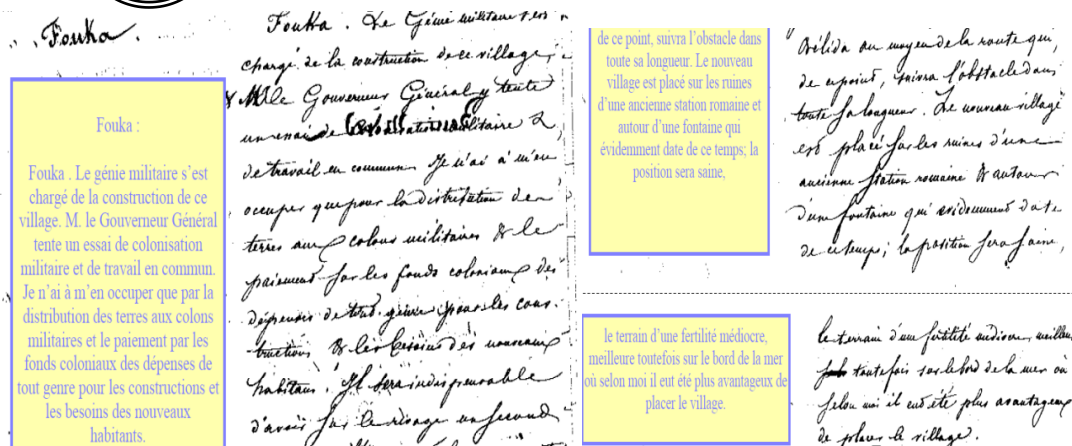 Fouka.
Fouka :
Fouka . Le génie militaire s’est
chargé de la construction de ce
village. M. le Gouverneur Général
tente un essai de colonisation
militaire et de travail en commun.
Je n’ai à m’en occuper que par la
distribution des terres aux colons
militaires et le paiement par les
fonds coloniaux des dépenses de
tout genre pour les constructions et
les besoins des nouveaux
habitants.
Fouka. Le Génie militaire s'est
chargé de la construction de ce village,
M. le Gouverneur Général y tente
un essai de colonisation militaire &
de travail en commun. Je n'ai à m'en
occuper que pour la distribution des
terres aux colons militaires & le
paiement sur les fonds coloniaux des
dépenses de tout genre pour les cons-
tructions & les besoins des nouveaux
habitans. Il sera indispensable
d'avoir sur le rivage un second
de ce point, suivra l’obstacle dans
toute sa longueur. Le nouveau
village est placé sur les ruines
d’une ancienne station romaine et
autour d’une fontaine qui
évidemment date de ce temps; la
position sera saine,
Bélida au moyen de la route qui,
de ce point, suivra l'obstacle dans
toute sa longueur. Le nouveau village
est placé sur les ruines d'une
ancienne station romaine & autour
d'une fontaine qui évidemment date
de ce temps; la position sera saine,
le terrain d’une fertilité médiocre,
meilleure toutefois sur le bord de la mer
où selon moi il eut été plus avantageux de
placer le village.
le terrain d'une fertilité médiocre, meilleure
toutefois sur le bord de la mer où
selon moi il eut été plus avantageux
de placer le village.